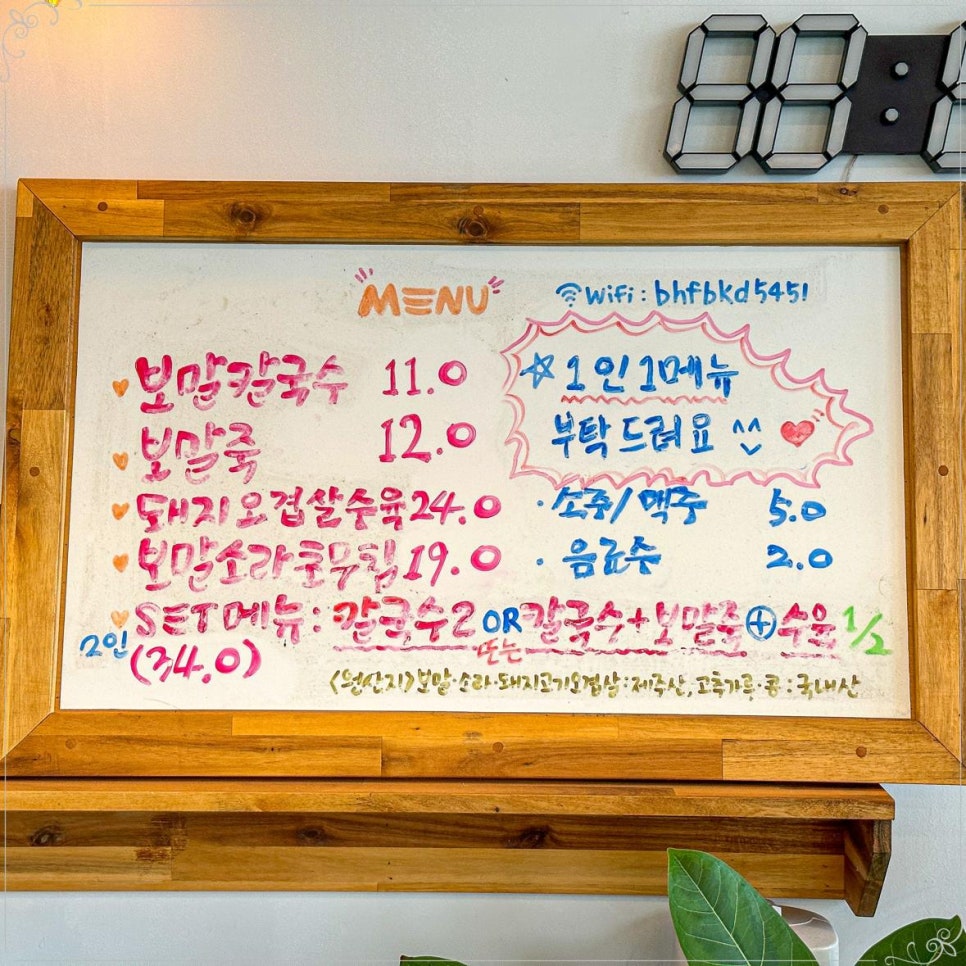 MENU
Wifi : bhfbkd5451
보말칼국수 11.0
보말죽 12.0
돼지오겹살수육 24.0
보말소라초무침 19.0
☆1인 1메뉴
부탁드려요 ^^
· 소주/맥주 5.0
· 음료수 2.0
SET메뉴 : 칼국수2 OR 칼국수+보말죽⊕수육 1/2
또는
2인 (34.0)
<원산지>보말·소라·돼지고기오겹살:제주산, 고춧가루·콩:국내산